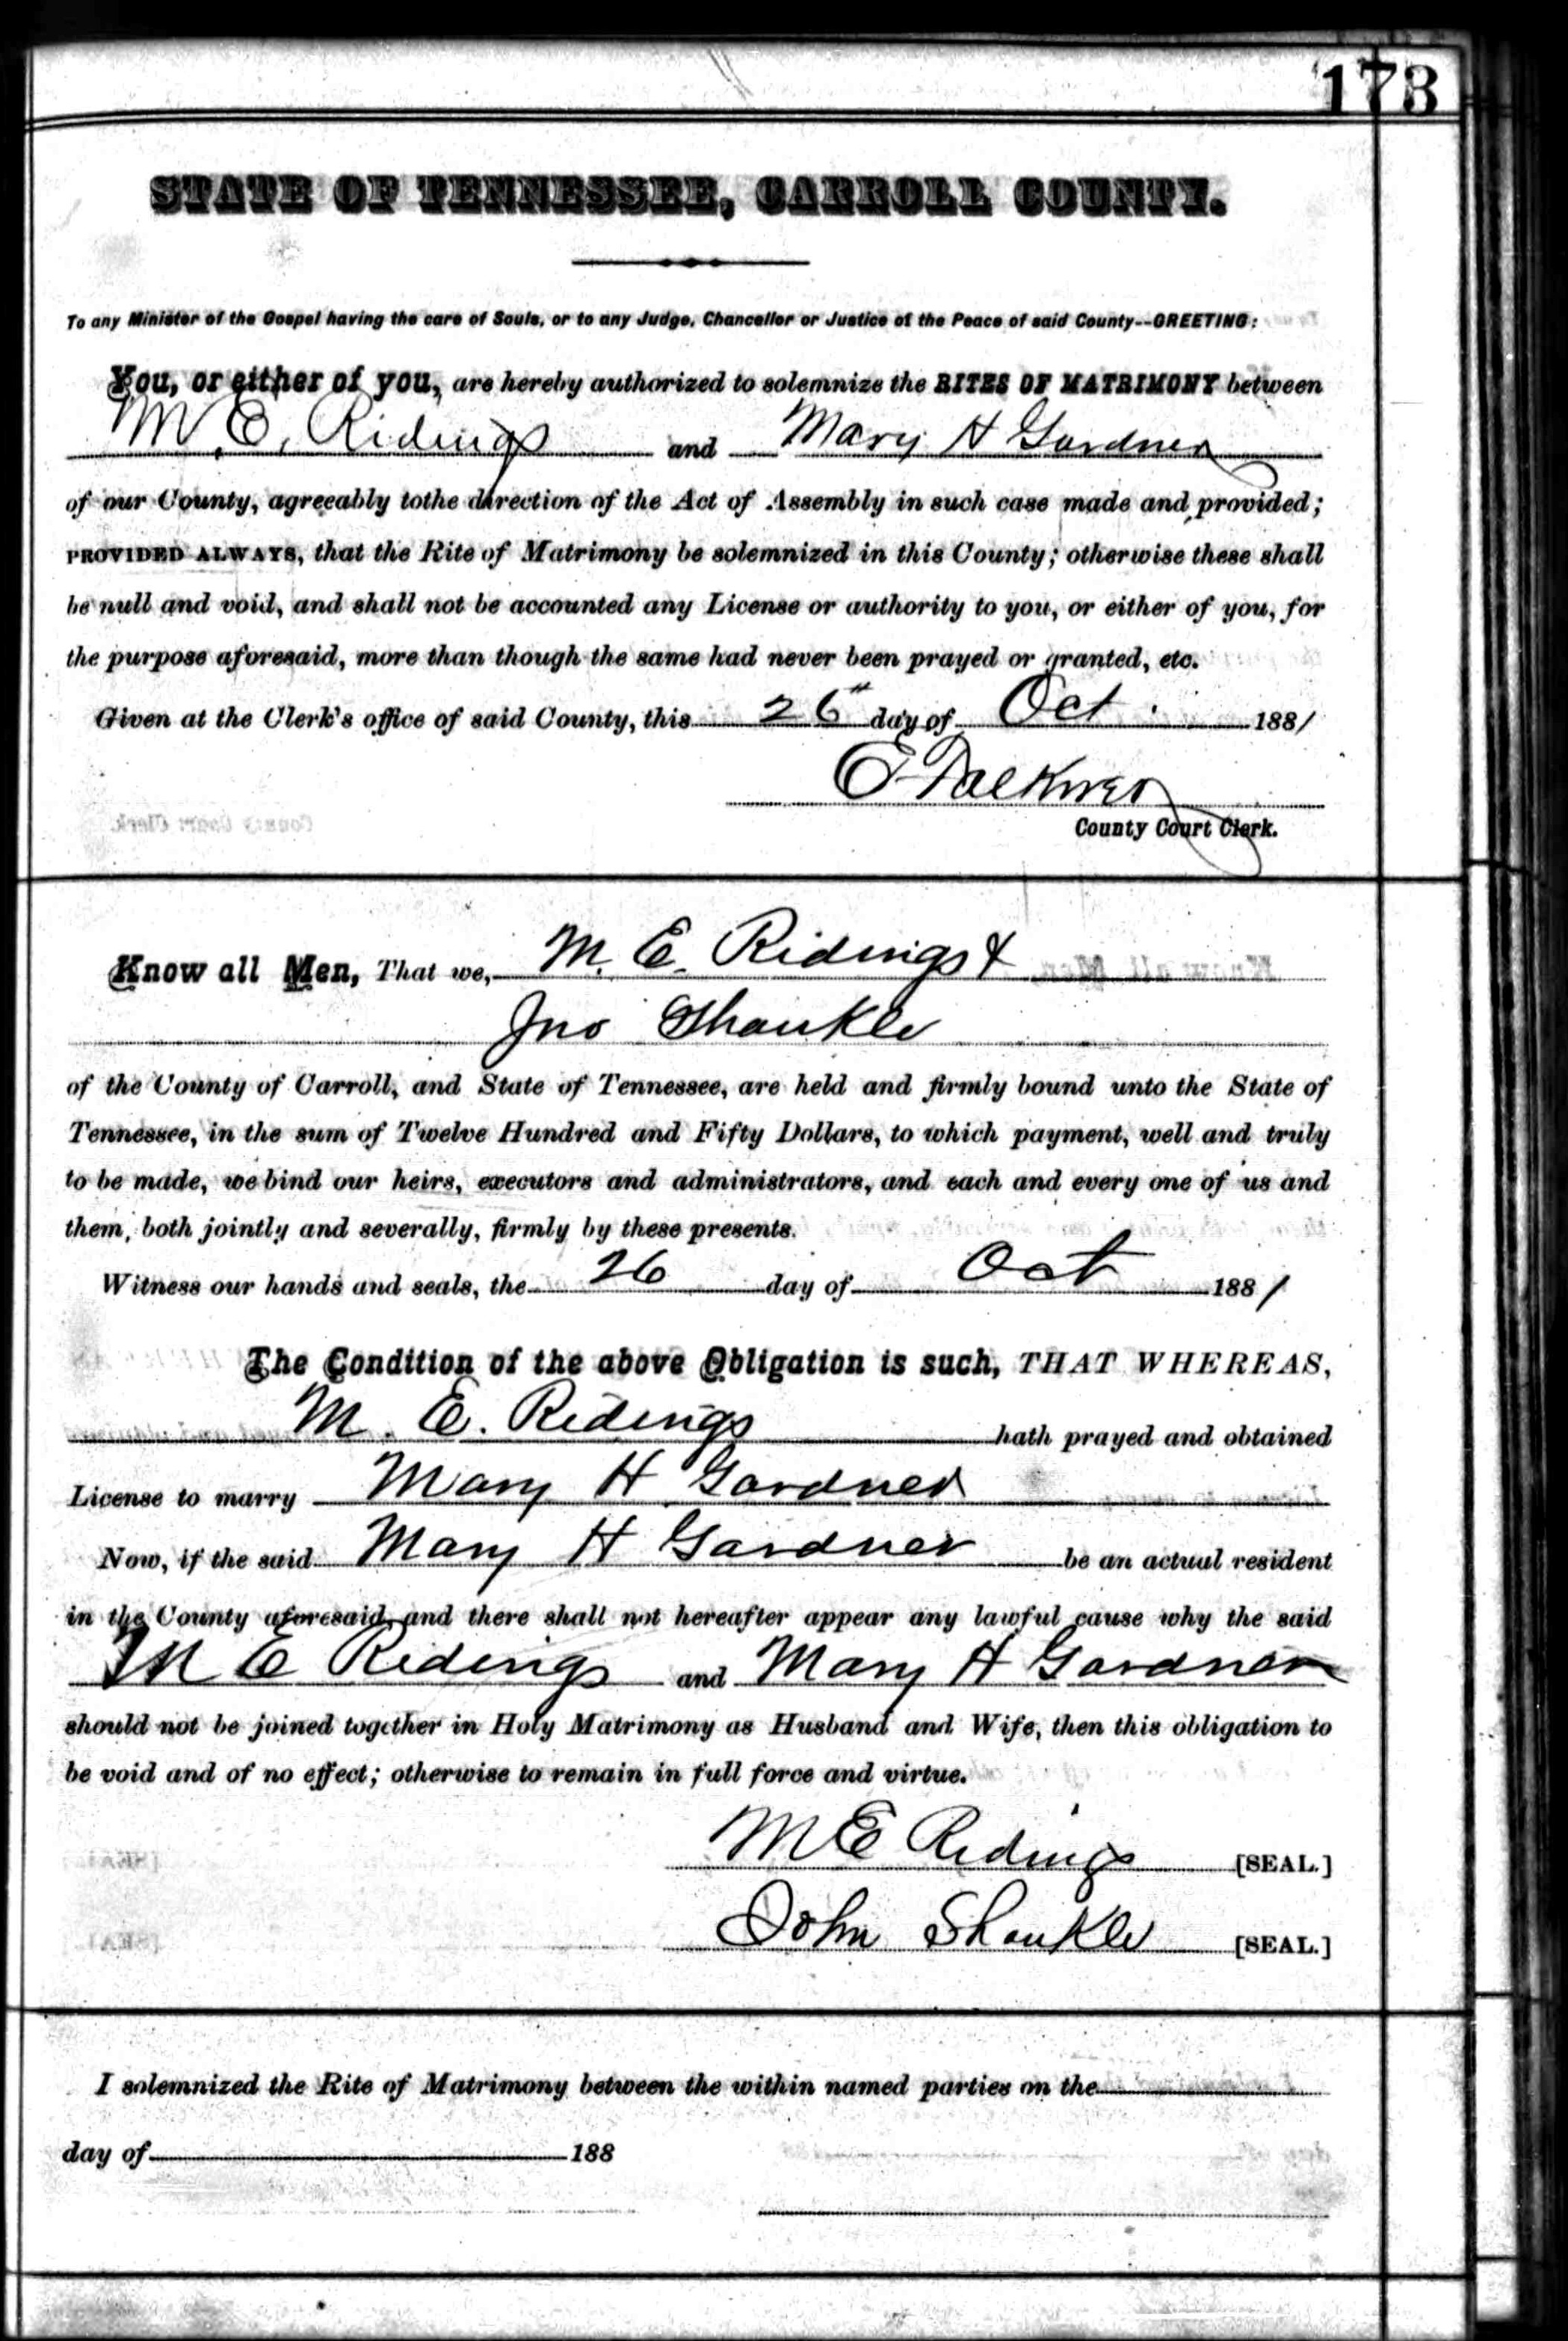 173
STATE OF TENNESSEE, CARROLL COUNTY.
To any Minister of the Gospel having the care of Souls, or to any Judge, Chancellor or Justice of the Peace of said County--GREETING:
You, or either of you, are hereby authorized to solemnize the RITES OF MATRIMONY between
M. E. Ridings and Mary H Gardner
of our County, agreeably tothe direction of the Act of Assembly in such case made and provided;
PROVIDED ALWAYS, that the Rite of Matrimony be solemnized in this County; otherwise these shall
be null and void, and shall not be accounted any License or authority to you, or either of you, for
the purpose aforesaid, more than though the same had never been prayed or granted, etc.
Given at the Clerk's office of said County, this 26th day of Oct. 1881
E Falkner
County Court Clerk.
Know all Men, That we, M. E. Ridings &
Jno Shankle
of the County of Carroll, and State of Tennessee, are held and firmly bound unto the State of
Tennessee, in the sum of Twelve Hundred and Fifty Dollars, to which payment, well and truly
to be made, we bind our heirs, executors and administrators, and each and every one of us and
them, both jointly and severally, firmly by these presents.
Witness our hands and seals, the 26 day of Oct 1881
The Condition of the above Obligation is such, THAT WHEREAS,
M. E. Ridings hath prayed and obtained
License to marry Mary H Gardner
Now, if the said Mary H Gardner be an actual resident
in the County aforesaid, and there shall not hereafter appear any lawful cause why the said
M E Ridings and Mary H Gardner
should not be joined together in Holy Matrimony as Husband and Wife, then this obligation to
be void and of no effect; otherwise to remain in full force and virtue.
M E Ridings [SEAL.]
John Shankle [SEAL.]
I solemnized the Rite of Matrimony between the within named parties on the
day of 188